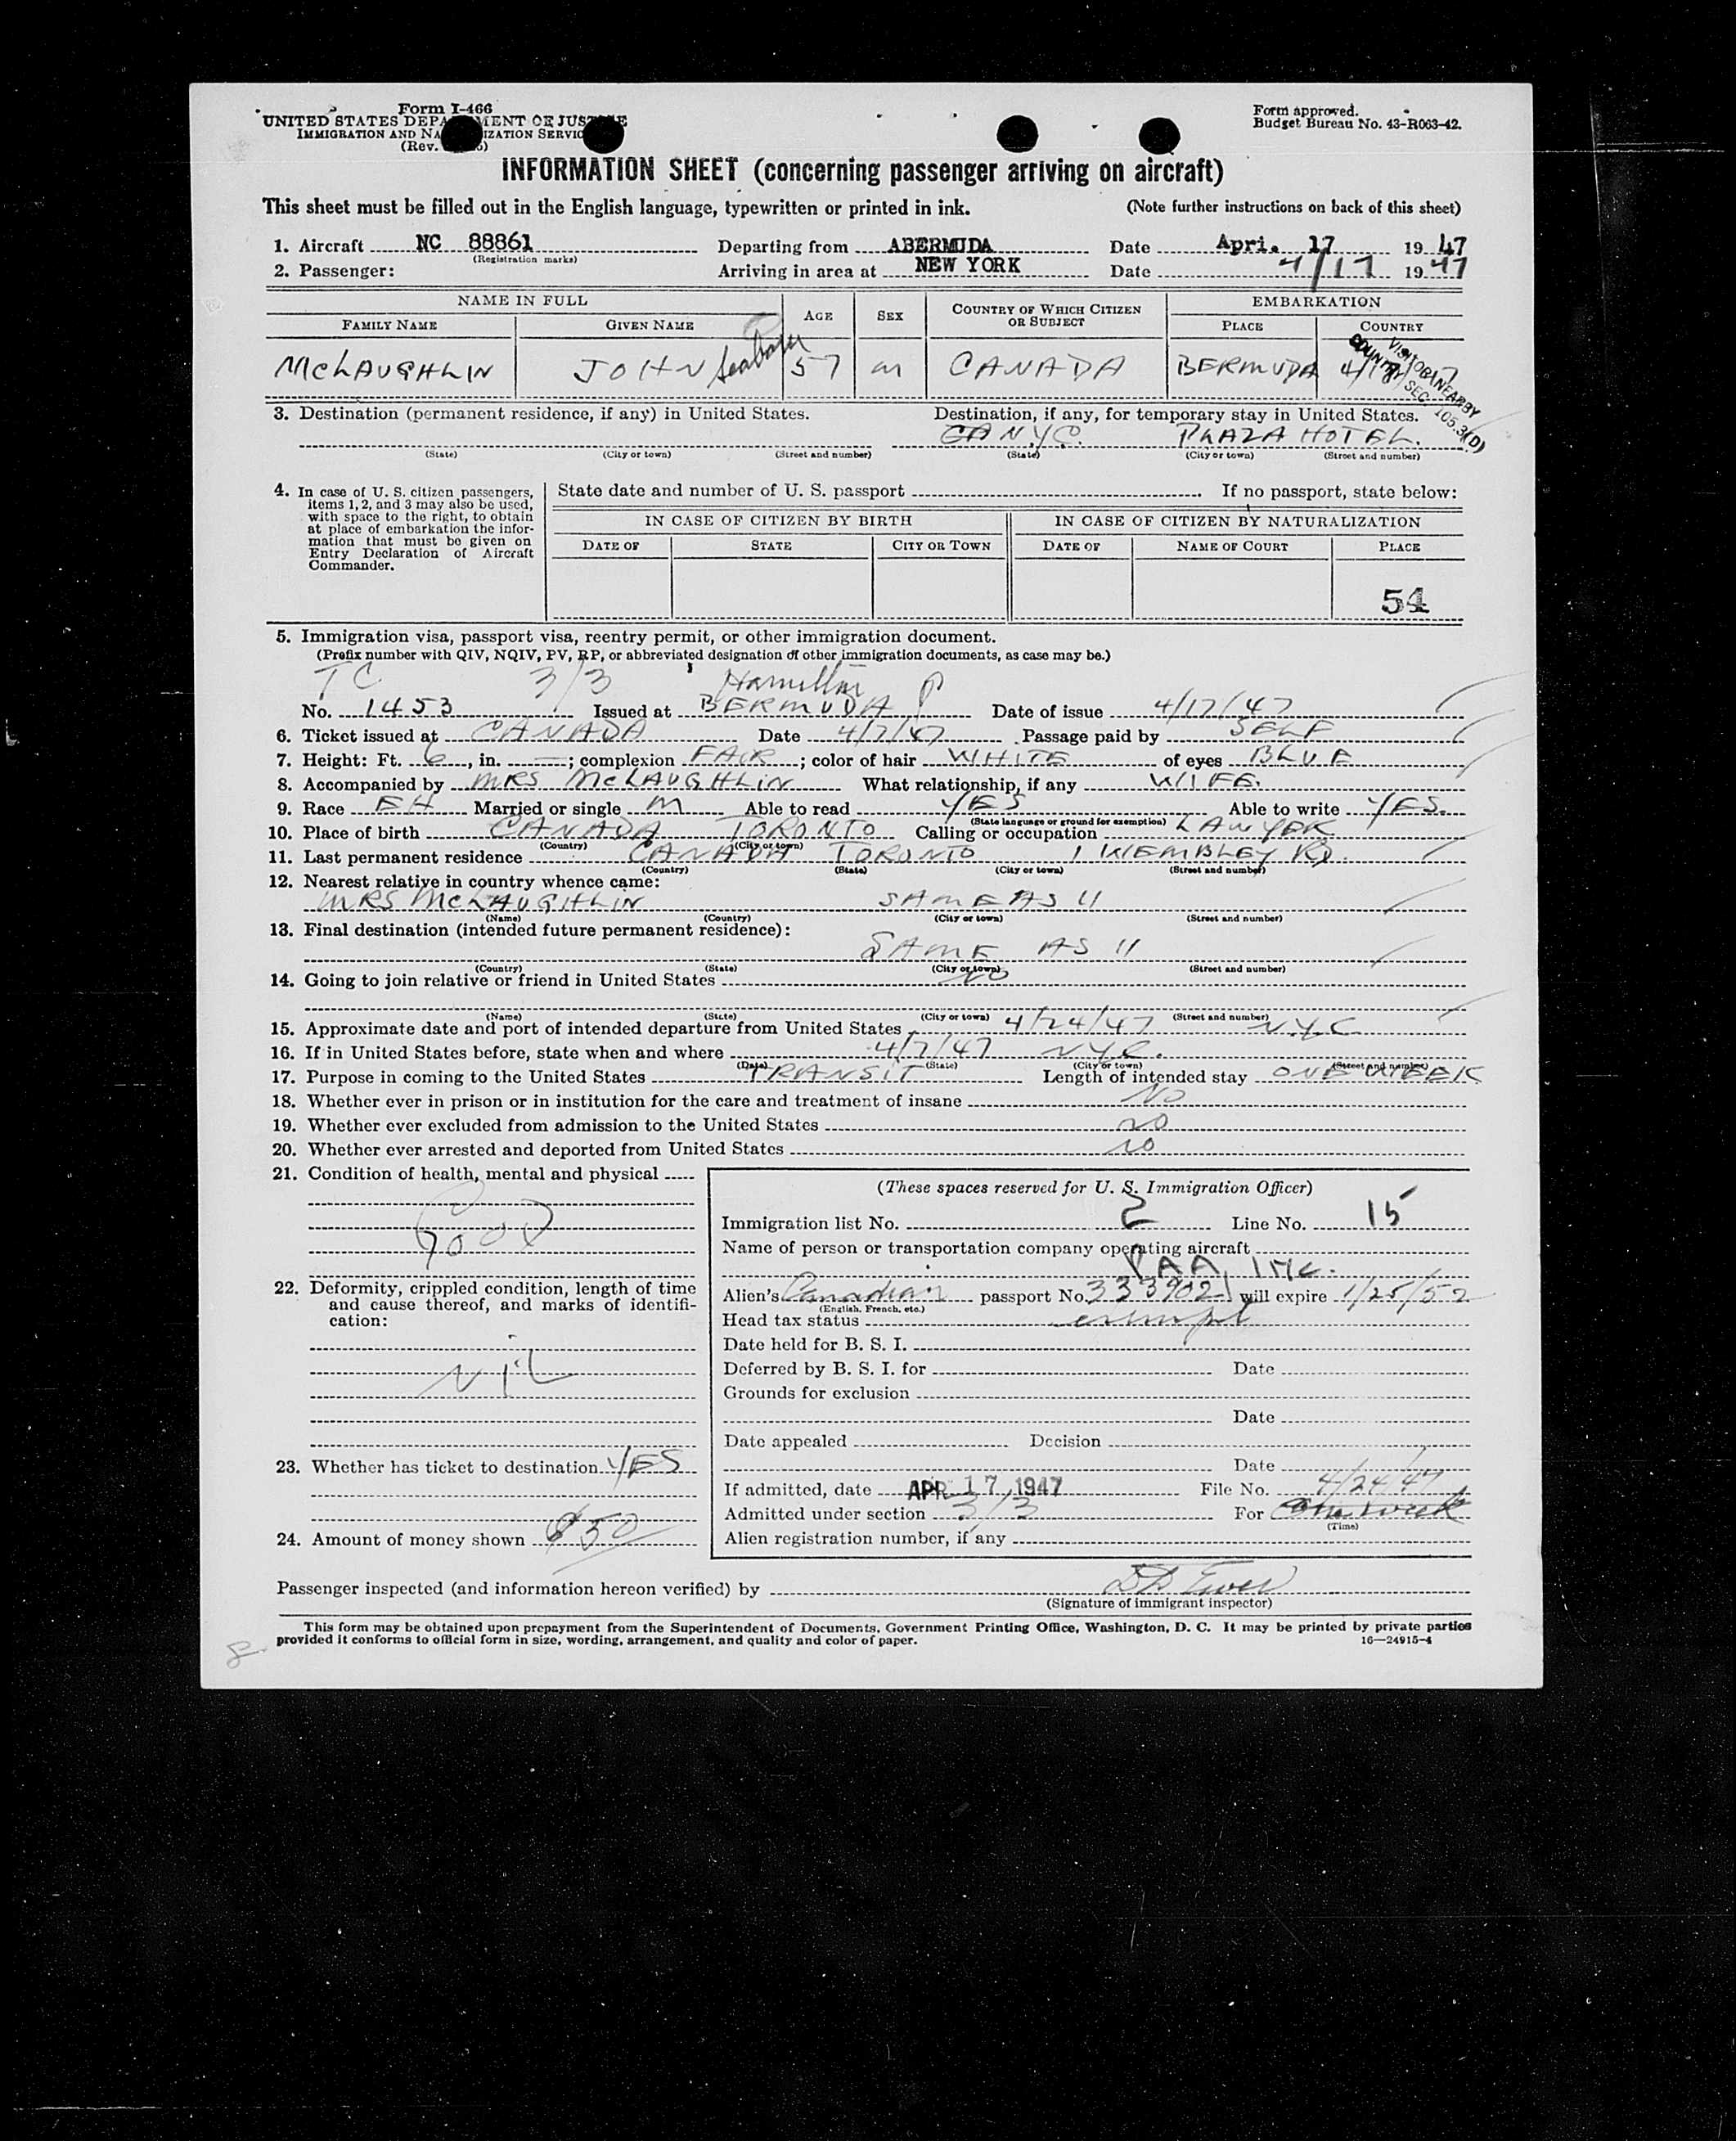 Form I-466
UNITED STATES DEPA MENT OF JUST E
IMMIGRATION AND NA IZATION SERVIC
(Rev. )
Form approved.
Budget Bureau No. 43-R063-42.
INFORMATION SHEET (concerning passenger arriving on aircraft)
This sheet must be filled out in the English language, typewritten or printed in ink. (Note further instructions on back of this sheet)
1. Aircraft NC 88861 Departing from ABERMUDA Date Apri. 17 1947
(Registration marks)
2. Passenger: Arriving in area at NEW YORK Date 4/17 1947
NAME IN FULL AGE SEX COUNTRY OF WHICH CITIZEN OR SUBJECT EMBARKATION
FAMILY NAME GIVEN NAME PLACE COUNTRY
McLAUGHLIN JOHN 57 M CANADA BERMUDA
VISITOR IN NEARBY
COUNTRY SEC. 105.3(D)
3. Destination (permanent residence, if any) in United States. Destination, if any, for temporary stay in United States.
N.Y.C. PLAZA HOTEL.
(State) (City or town) (Street and number) (State) (City or town) (Street and number)
4. In case of U. S. citizen passengers, items 1, 2, and 3 may also be used, with space to the right, to obtain at place of embarkation the information that must be given on Entry Declaration of Aircraft Commander.
State date and number of U. S. passport If no passport, state below:
IN CASE OF CITIZEN BY BIRTH IN CASE OF CITIZEN BY NATURALIZATION
DATE OF STATE CITY OR TOWN DATE OF NAME OF COURT PLACE
54
5. Immigration visa, passport visa, reentry permit, or other immigration document.
(Prefix number with QIV, NQIV, PV, RP, or abbreviated designation of other immigration documents, as case may be.)
TC 3/3 Hamilton
No. 1453 Issued at BERMUDA Date of issue 4/17/47
6. Ticket issued at CANADA Date 4/7/47 Passage paid by SELF
7. Height: Ft. 6, in. —; complexion FAIR; color of hair WHITE of eyes BLUE
8. Accompanied by MRS McLAUGHLIN What relationship, if any WIFE.
9. Race EH Married or single M Able to read YES Able to write YES.
(State language or ground for exemption)
10. Place of birth CANADA TORONTO Calling or occupation LAWYER
(Country) (City or town)
11. Last permanent residence CANADA TORONTO 1 WEMBLEY RD.
(Country) (State) (City or town) (Street and number)
12. Nearest relative in country whence came:
MRS McLAUGHLIN SAME AS 11
(Name) (Country) (City or town) (Street and number)
13. Final destination (intended future permanent residence):
SAME AS 11
(Country) (State) (City or town) (Street and number)
14. Going to join relative or friend in United States NO
(Name) (State) (City or town) (Street and number)
15. Approximate date and port of intended departure from United States 4/24/47 N.Y.C
16. If in United States before, state when and where 4/7/47 NYC.
(Date) (State) (City or town) (Street and number)
17. Purpose in coming to the United States TRANSIT Length of intended stay ONE WEEK
18. Whether ever in prison or in institution for the care and treatment of insane NO
19. Whether ever excluded from admission to the United States NO
20. Whether ever arrested and deported from United States NO
21. Condition of health, mental and physical
GOOD
22. Deformity, crippled condition, length of time and cause thereof, and marks of identification:
NIL
23. Whether has ticket to destination YES
24. Amount of money shown $50
(These spaces reserved for U. S. Immigration Officer)
Immigration list No. 2 Line No. 15
Name of person or transportation company operating aircraft
PAA, INC.
Alien's Canadian passport No. 333902 will expire 1/25/52
(English, French, etc.)
Head tax status exempt
Date held for B. S. I.
Deferred by B. S. I. for Date
Grounds for exclusion
Date
Date appealed Decision
Date
If admitted, date APR 17 1947 File No. 4/24/47
Admitted under section 3/3 For One week
(Time)
Alien registration number, if any
Passenger inspected (and information hereon verified) by
(Signature of immigrant inspector)
This form may be obtained upon prepayment from the Superintendent of Documents, Government Printing Office, Washington, D. C. It may be printed by private parties
provided it conforms to official form in size, wording, arrangement, and quality and color of paper. 16—24915-4